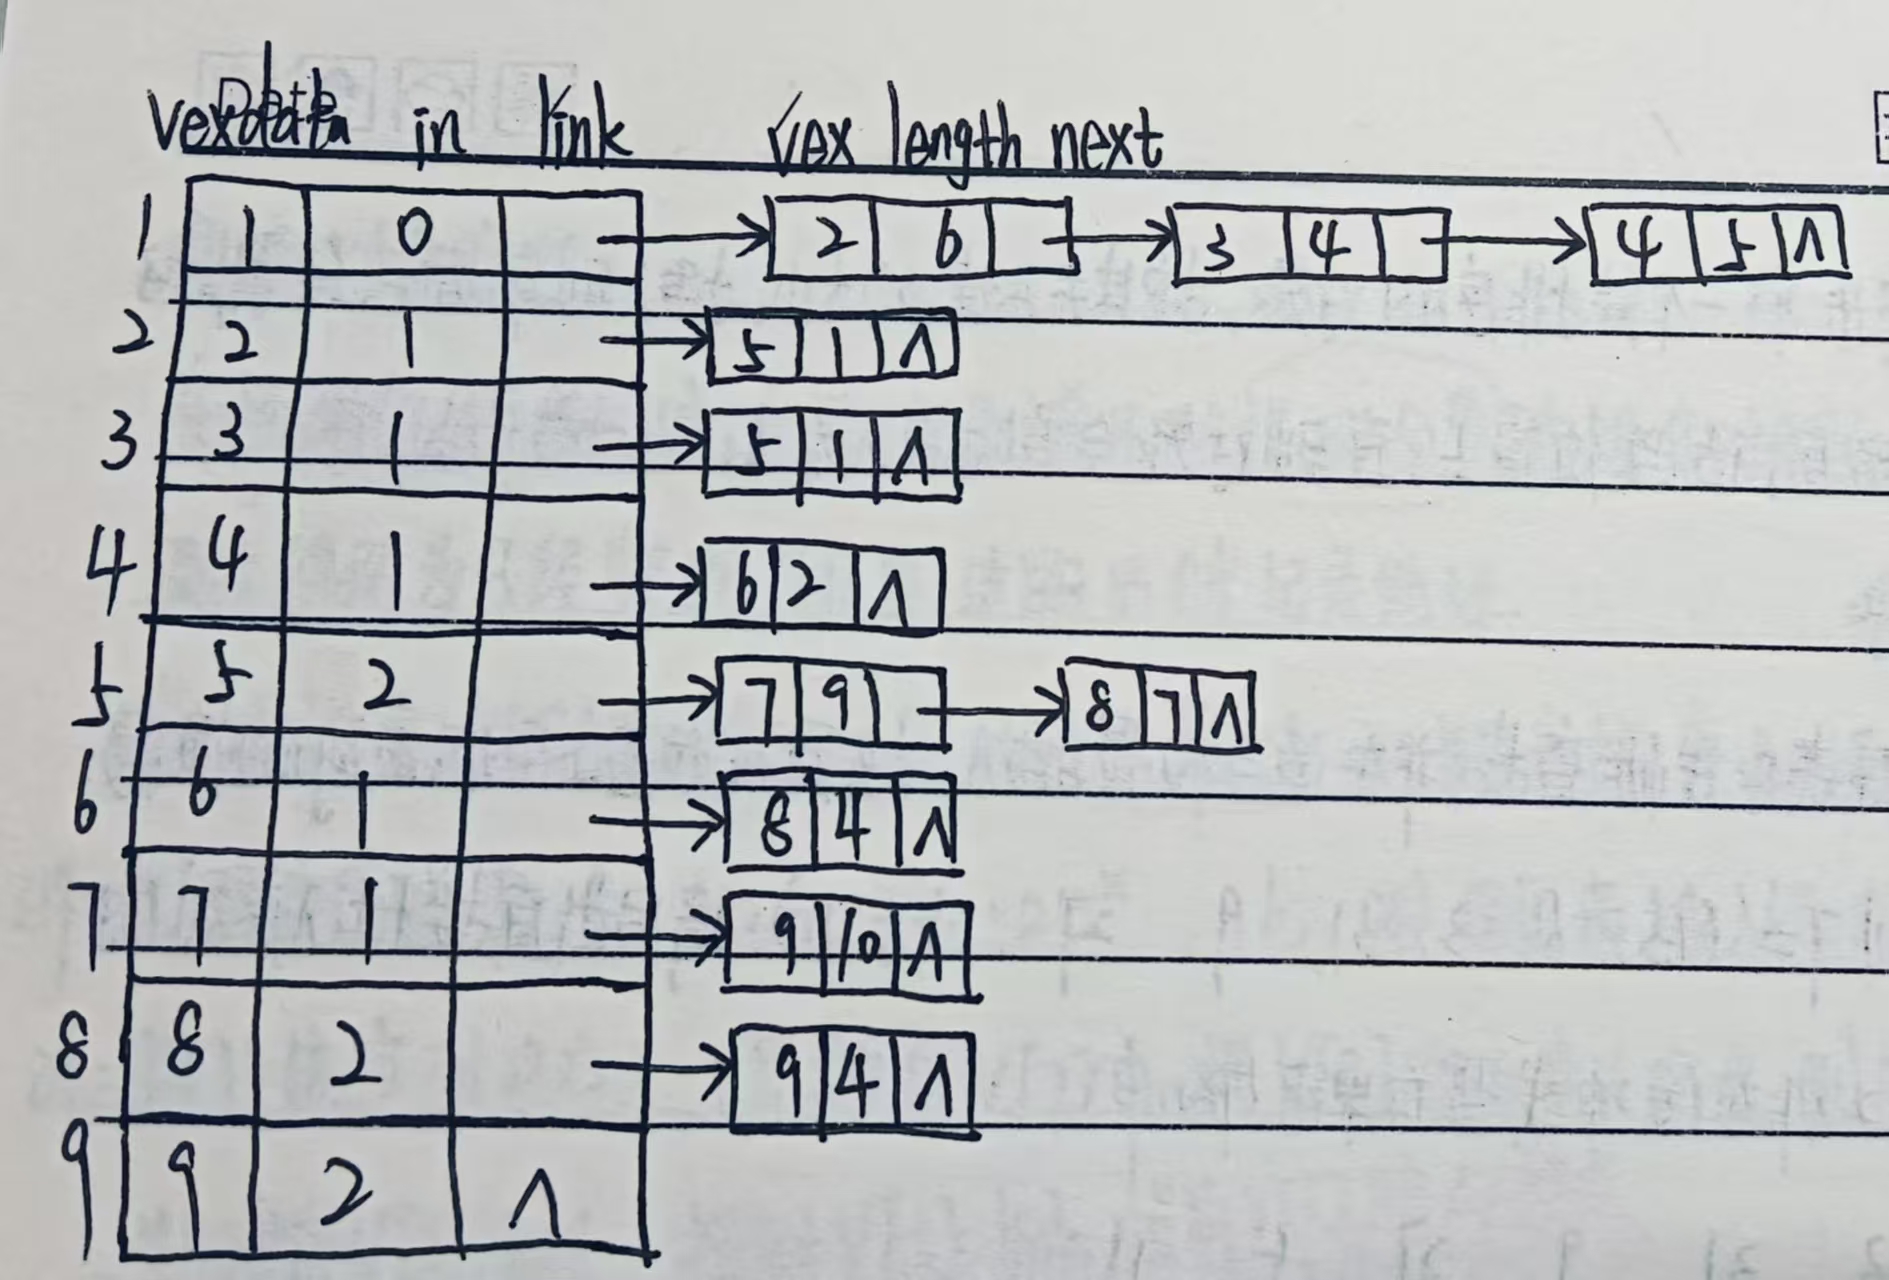 vexdata in link vex length next
1 1 0 2 6 3 4 4 5 ∧
2 2 1 5 1 ∧
3 3 1 5 1 ∧
4 4 1 6 2 ∧
5 5 2 7 9 8 7 ∧
6 6 1 8 4 ∧
7 7 1 9 10 ∧
8 8 2 9 4 ∧
9 9 2 ∧